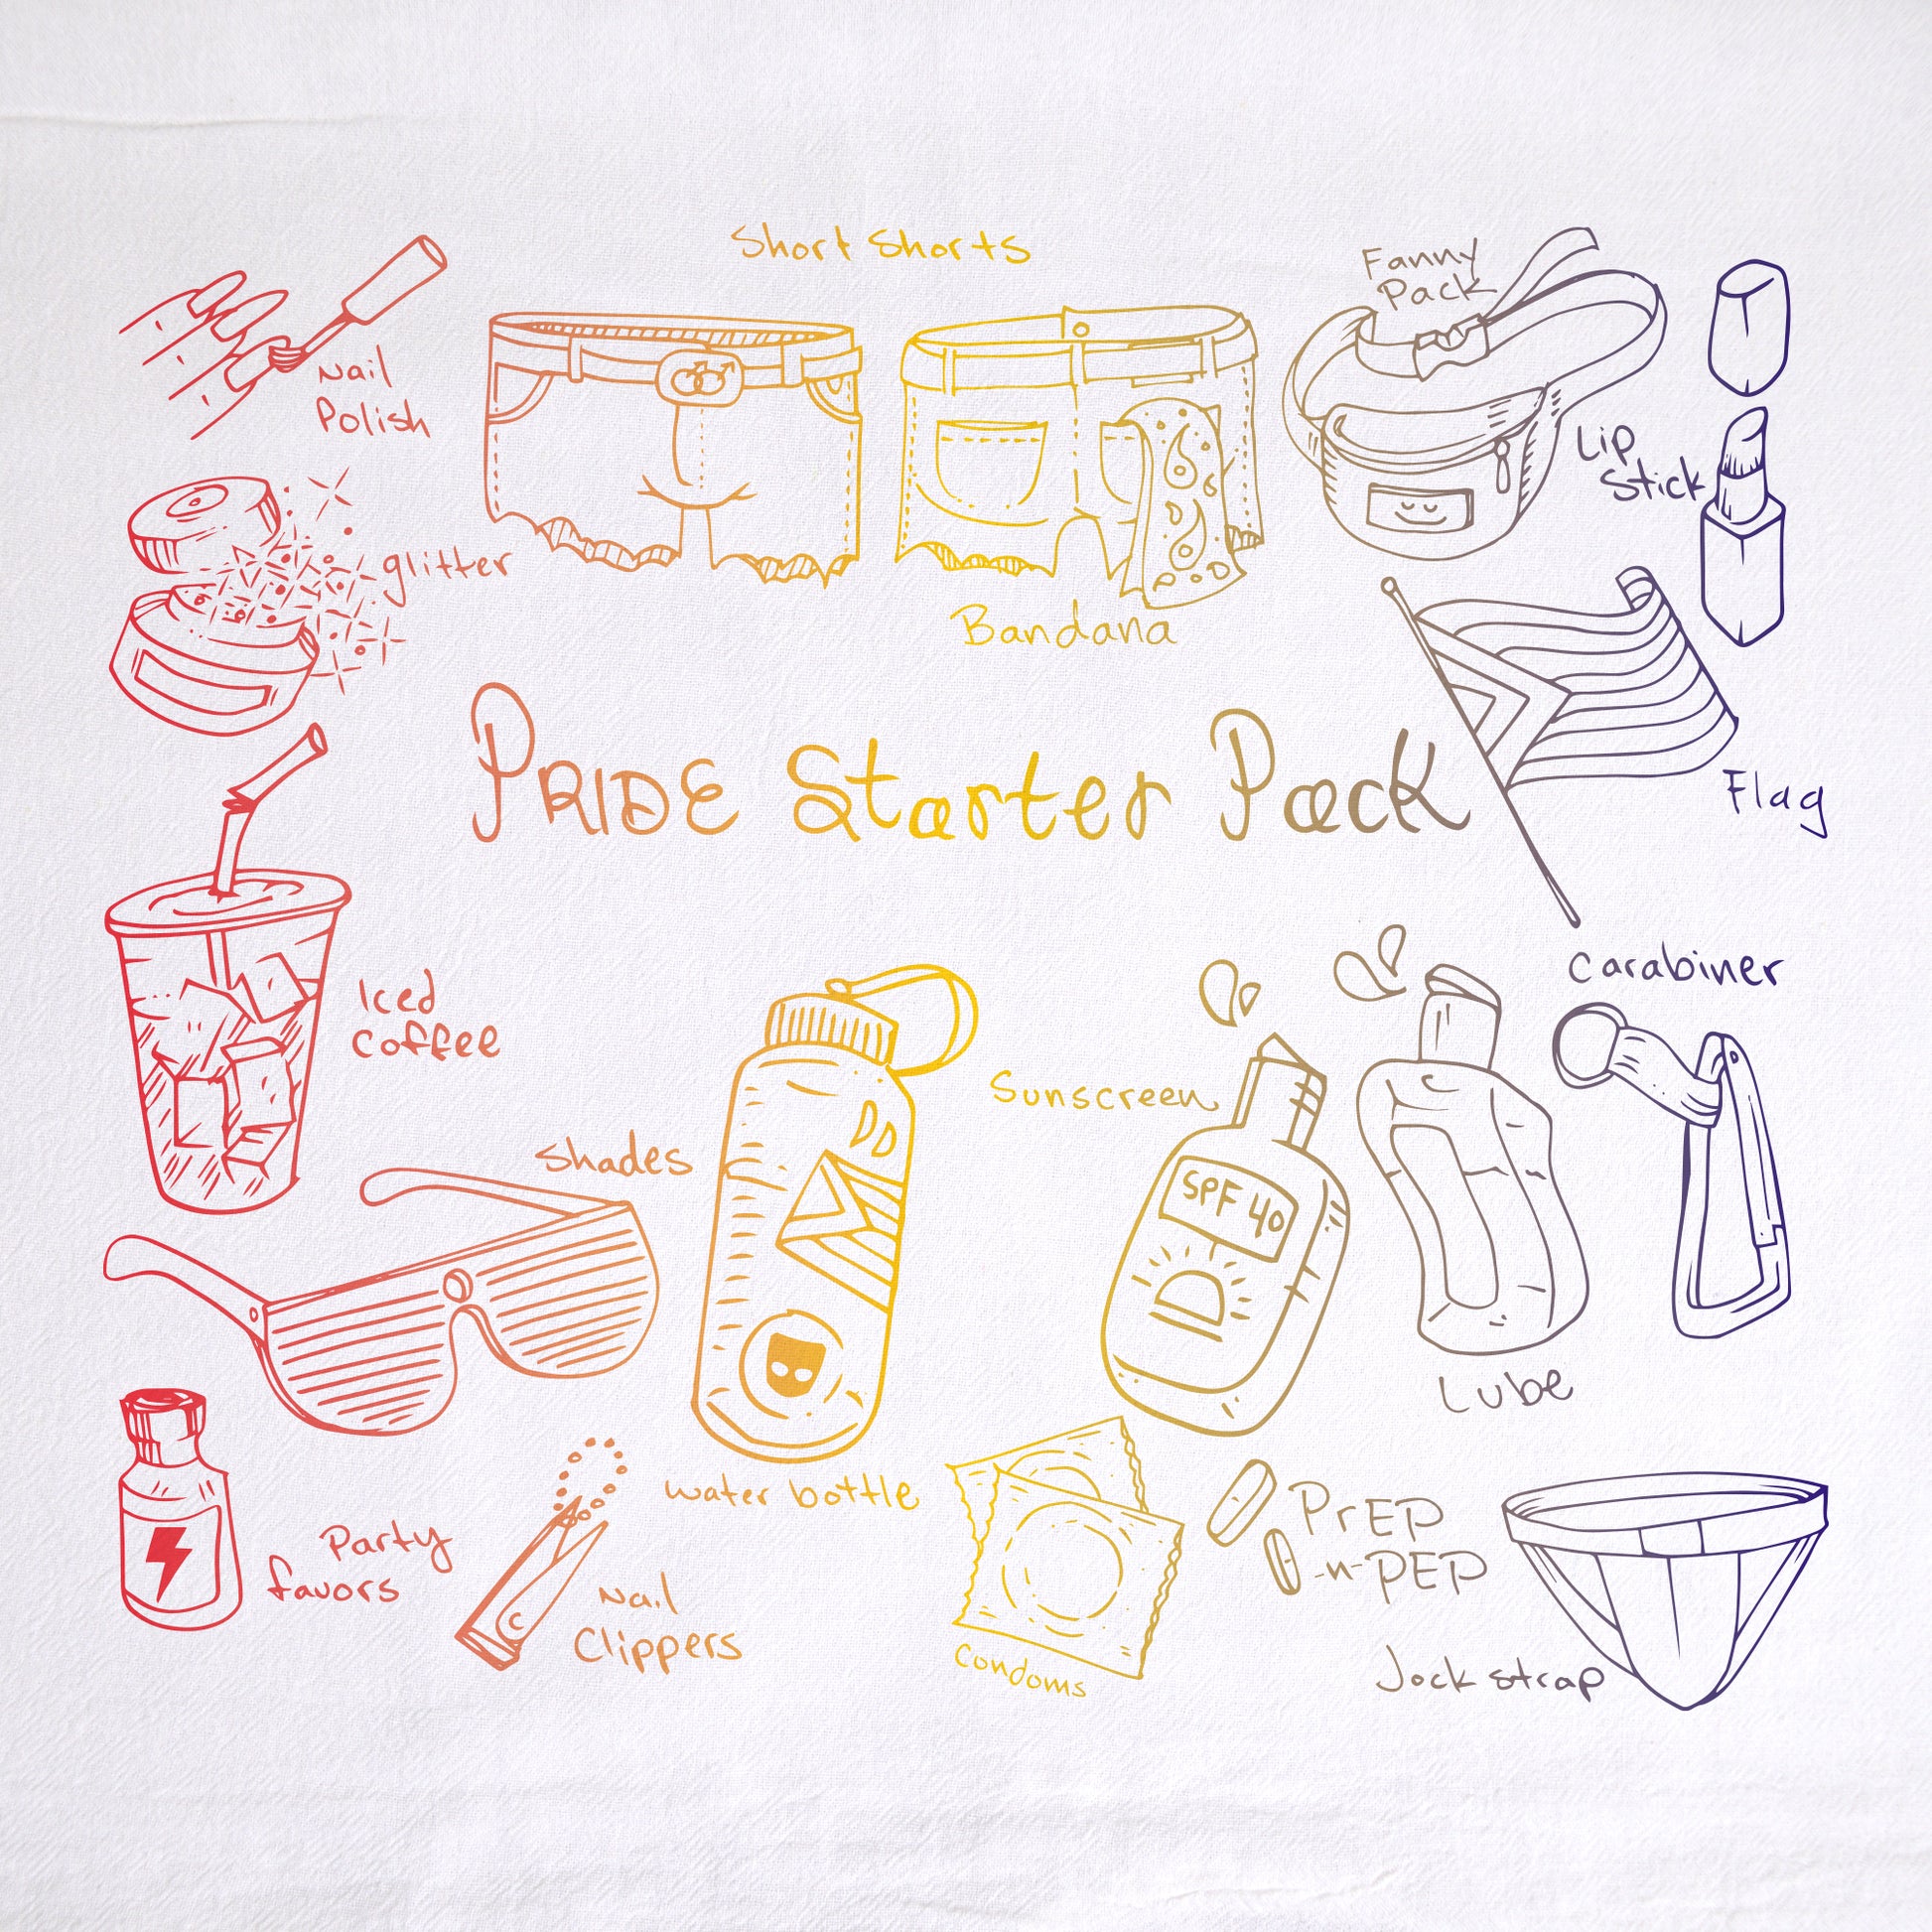 Short Shorts
Fanny
Pack
Nail
Polish
Lip
Stick
glitter
Bandana
PRIDE Starter Pack
Flag
Carabiner
Iced
Coffee
Sunscreen
Shades
SPF 40
Lube
water bottle
PrEP
-n-PEP
Party
favors
Nail
Clippers
Condoms
Jock strap